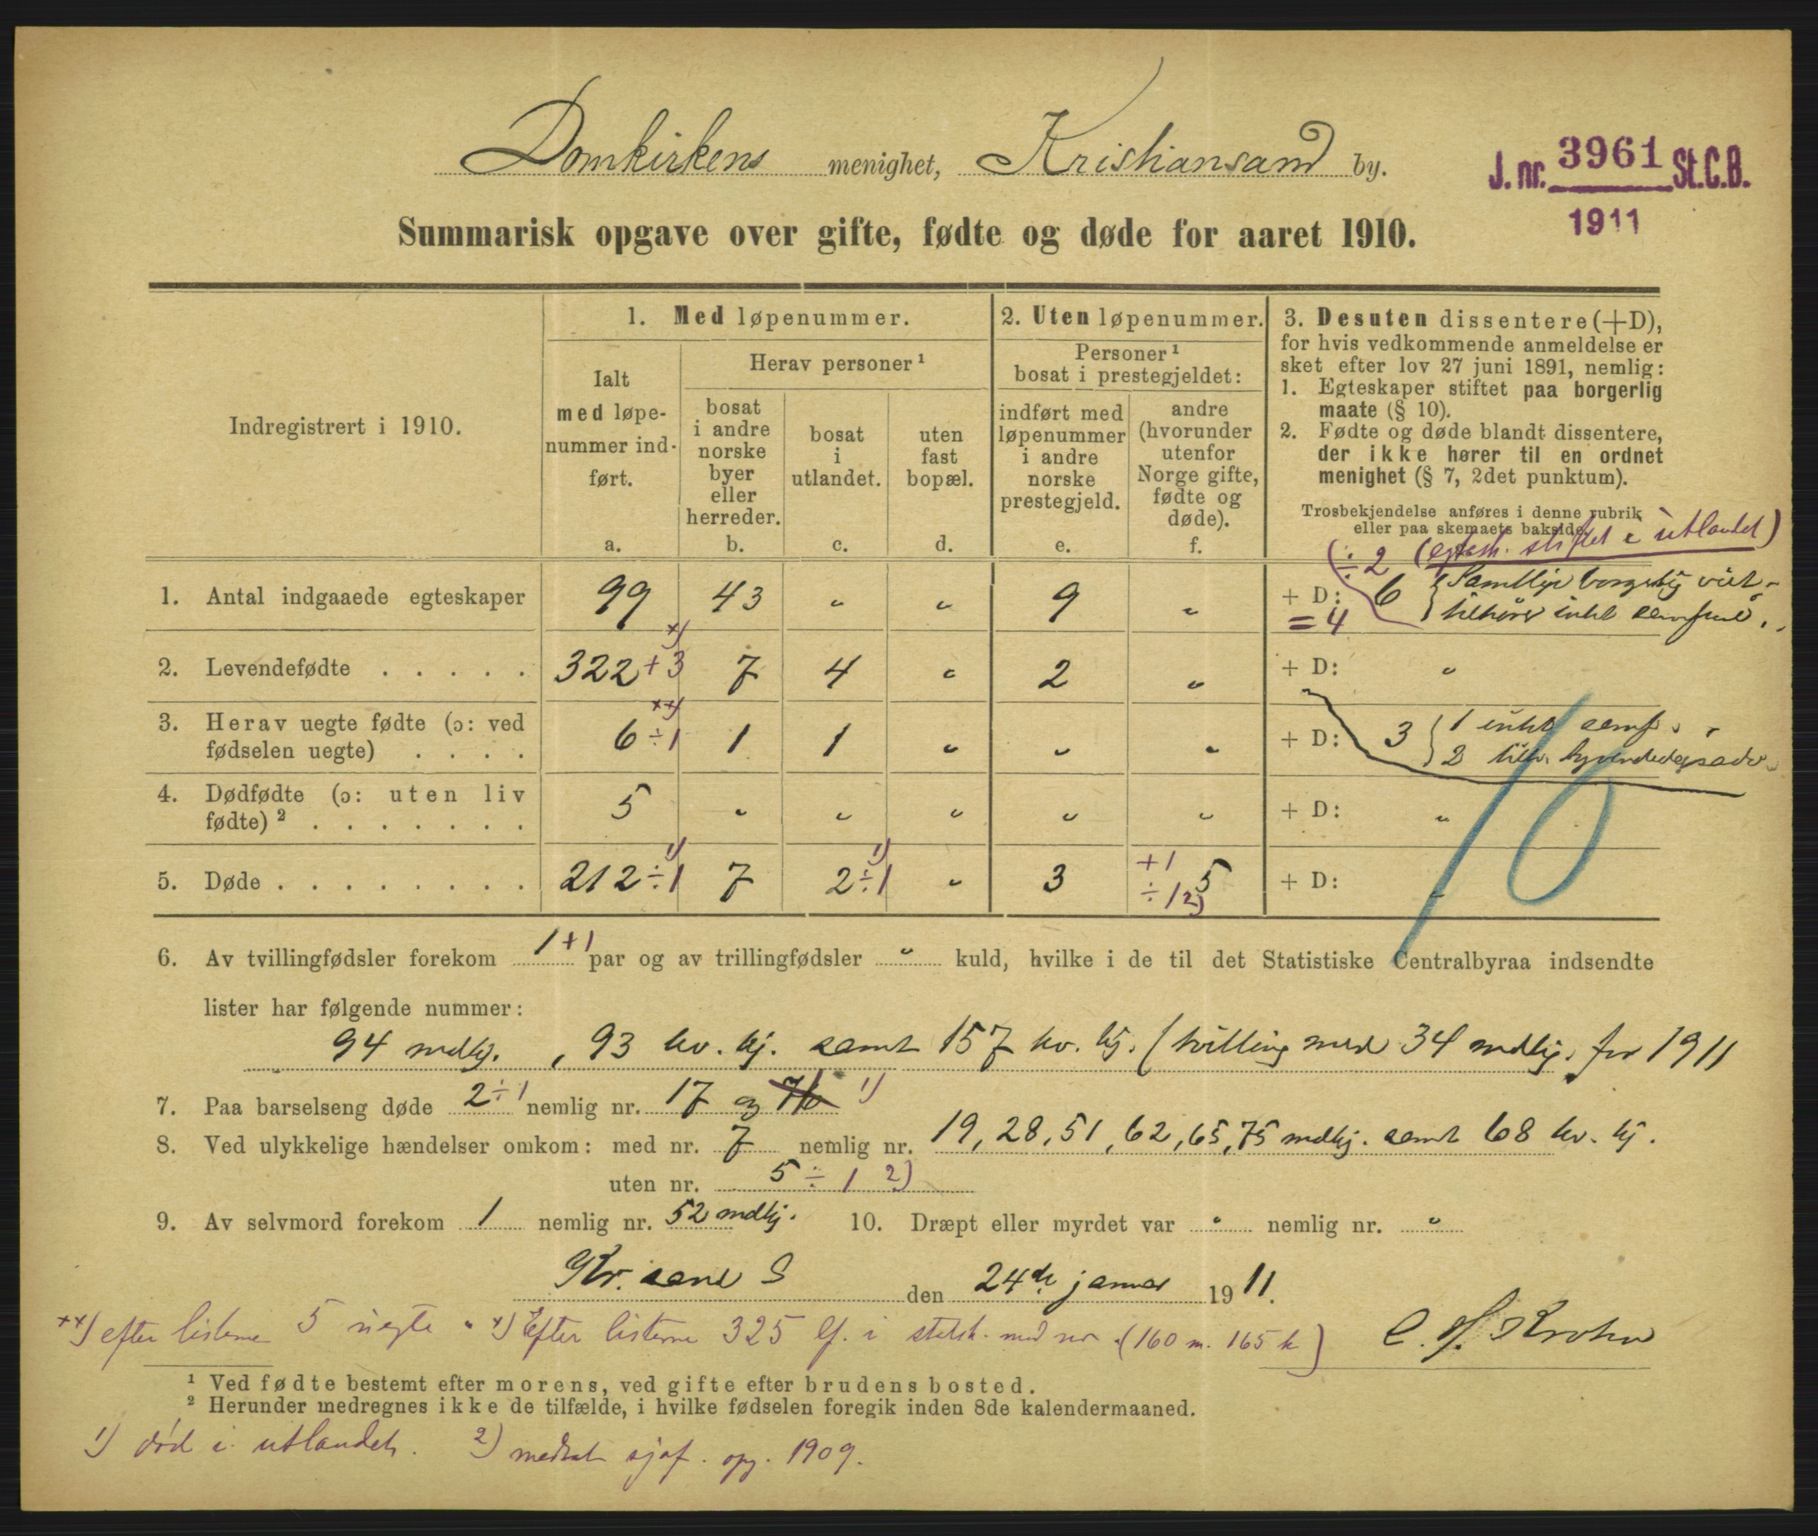 Domkirkens menighet, Kristiansand by.
J. nr. 3961 St.C.B.
1911
Summarisk opgave over gifte, fødte og døde for aaret 1910.
Indregistrert i 1910.
1. Med løpenummer.
Ialt med løpenummer indført.
a.
Herav personer ¹
bosat i andre norske byer eller herreder.
b.
bosat i utlandet.
c.
uten fast bopæl.
d.
2. Uten løpenummer.
Personer ¹ bosat i prestegjeldet:
indført med løpenummer i andre norske prestegjeld.
e.
andre (hvorunder utenfor Norge gifte, fødte og døde).
f.
3. Desuten dissentere (+D),
for hvis vedkommende anmeldelse er
sket efter lov 27 juni 1891, nemlig:
1. Egteskaper stiftet paa borgerlig
maate (§ 10).
2. Fødte og døde blandt dissentere,
der ikke hører til en ordnet
menighet (§ 7, 2det punktum).
Trosbekjendelse anføres i denne rubrik
eller paa skemaets bakside.
÷ 2 (egtesk. stiftet i utlandet)
1. Antal indgaaede egteskaper 99 43 " " 9 " + D: 6 { Samtlige borgerlig viet
= 4 tilhører intet samfund.
2. Levendefødte . . . . . 322 +3 x) 7 4 " 2 " + D: "
3. Herav uegte fødte (ɔ: ved
fødselen uegte) . . . . 6 ÷1 xx) 1 1 " " " + D: 3 { 1 intet samf.
2 tilh.
4. Dødfødte (ɔ: uten liv
fødte) ² . . . . . . . 5 " " " " " + D: "
5. Døde . . . . . . . . 212 ÷1 1) 7 2 ÷1 1) " 3 +1 ÷1 2) 5 + D: "
10
6. Av tvillingfødsler forekom 1 +1 par og av trillingfødsler " kuld, hvilke i de til det Statistiske Centralbyraa indsendte
lister har følgende nummer:
94 mdkj. , 93 kv. kj. samt 157 kv. kj. (tvilling med 34 mdkj. for 1911
7. Paa barselseng døde 2 ÷ 1 nemlig nr. 17 og 76 1)
8. Ved ulykkelige hændelser omkom: med nr. 7 nemlig nr. 19, 28, 51, 62, 65, 75 mdkj. samt 68 kv. kj.
uten nr. 5 ÷ 1 2)
9. Av selvmord forekom 1 nemlig nr. 52 mdkj. 10. Dræpt eller myrdet var " nemlig nr. "
Kr.sand S den 24de januar 1911.
xx) efter listerne 5 uegte. x) Efter listerne 325 lf. i statsk. med nr. (160 m. 165 k)
C. Krohn
¹ Ved fødte bestemt efter morens, ved gifte efter brudens bosted.
² Herunder medregnes ikke de tilfælde, i hvilke fødselen foregik inden 8de kalendermaaned.
1) død i utlandet. 2) medtat sjøf. opg. 1909.